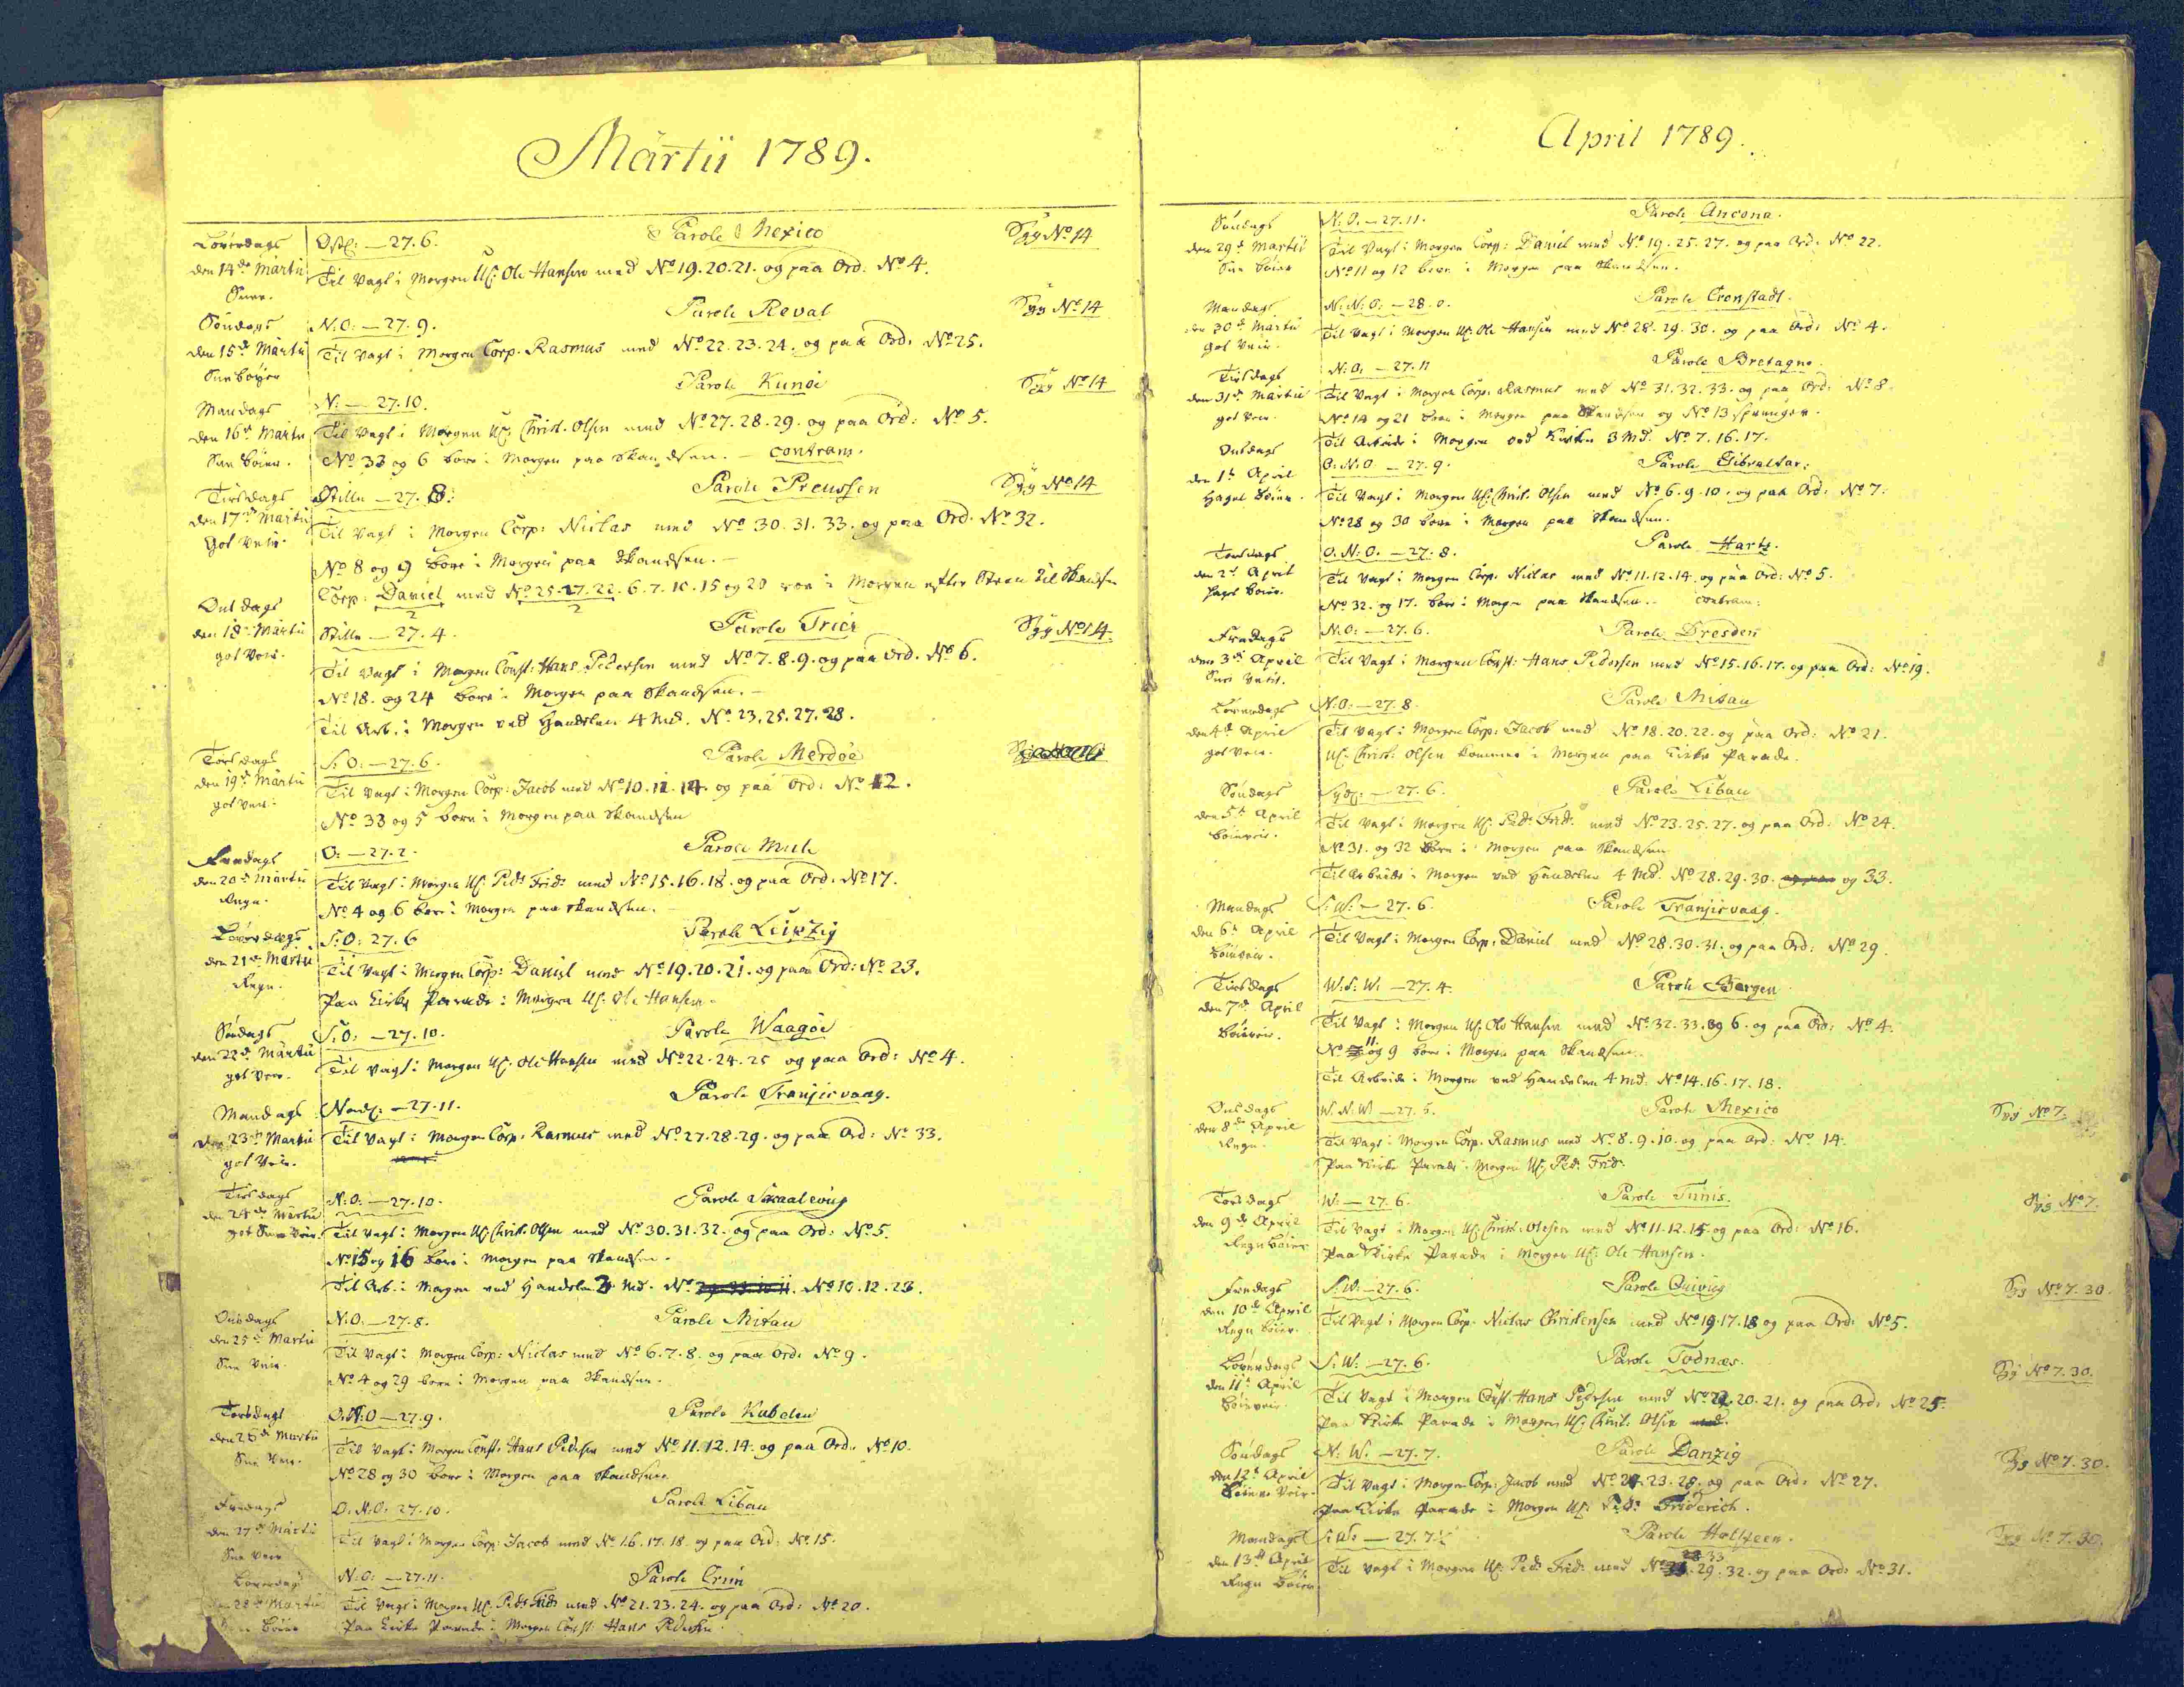 Martii 1789.
Löverdags Ostl: — 27.6. Parole Mexico Syg No 14
den 14de Martii Til Vagt i Morgen Uf: Ole Hansen med No 19. 20. 21. og paa Ord: No 4.
Snee.
Söndags N:O: — 27.9. Parole Reval Syg No 14
den 15de Martii Til Vagt i Morgen Corp. Rasmus med No 22. 23. 24. og paa Ord: No 25.
Snee böyer
Mandags N: — 27.10. Parole Kunöe Syg No 14
den 16de Martii Til Vagt i Morgen Uf: Christ. Olsen med No 27. 28. 29. og paa Ord: No 5.
Snee böier. No 33 og 6 bære i Morgen paa Skandsen. — contram.
Tirsdags Stille — 27.8. Parole Preussen Syg No 14
den 17de Martii Til Vagt i Morgen Corp: Niclas med No 30. 31. 33. og paa Ord. No 32.
got Veir. No 8 og 9 bære i Morgen paa Skandsen. —
Corp: Daniel med No 25. 27. 22. 6. 7. 10. 15 og 20 roe i Morgen efter Steen til Skandsen
Onsdags Stille — 27.4. Parole Trier Syg No 14
den 18de Martii Til Vagt i Morgen Const: Hans Pedersen med No 7. 8. 9. og paa Ord. No 6.
got Veir. No 18. og 24 bære i Morgen paa Skandsen. —
Til Arb. i Morgen ved Handelen 4 Md. No 23. 25. 27. 28.
Torsdags S:O: — 27.6. Parole Merdöe
den 19de Martii Til Vagt i Morgen Corp: Jacob med No 10. 11. 14. og paa Ord: No 12.
got Veir. No 33 og 5 bære i Morgen paa Skandsen
Fredags O: — 27.2. Parole Mule
den 20de Martii Til Vagt i Morgen Uf: Ped: Frid: med No 15. 16. 18. og paa Ord. No 17.
Regn. No 4 og 6 bære i Morgen paa Skandsen.
Löverdags S:O: 27.6 Parole Leipzig
den 21de Martii Til Vagt i Morgen Corp: Daniel med No 19. 20. 21. og paa Ord: No 23.
Regn. Paa Kirke Parade i Morgen Uf: Ole Hansen.
Söndags S:O: — 27.10. Parole Waagöe
den 22de Martii Til Vagt i Morgen Uf: Ole Hansen med No 22. 24. 25 og paa Ord: No 4.
got Veir.
Mandags Nordl: — 27.11. Parole Tranjisvaag.
den 23de Martii Til Vagt i Morgen Corp: Rasmus med No 27. 28. 29. og paa Ord: No 33.
got Veir.
Tirsdags N:O: — 27.10. Parole Skaalevig
den 24de Martii Til Vagt i Morgen Uf: Christ. Olsen med No 30. 31. 32. og paa Ord: No 5.
got Snee Veir. No 15 og 16 bære i Morgen paa Skandsen.
Til Arb. i Morgen ved Handelen 3 Md. No 10. 12. 23.
Onsdags N:O: — 27.8. Parole Mitau
den 25de Martii Til Vagt i Morgen Corp: Niclas med No 6. 7. 8. og paa Ord: No 9.
Snee Veir. No 4 og 29 bære i Morgen paa Skandsen.
Torsdags O:N:O — 27.9. Parole Kubelen
den 26de Martii Til Vagt i Morgen Const: Hans Pedersen med No 11. 12. 14. og paa Ord: No 10.
Snee Veir. No 28 og 30 bære i Morgen paa Skandsen.
Fredags O.N:O: 27.10. Parole Libau
den 27de Martii Til Vagt i Morgen Corp: Jacob med No 16. 17. 18. og paa Ord: No 15.
Snee Veir
Löverdags N:O: — 27.11. Parole Crim
den 28de Martii Til Vagt i Morgen Uf: Ped: Frid: med No 21. 23. 24. og paa Ord: No 20.
böier Paa Kirke Parade i Morgen Const: Hans Pedersen.
April 1789.
Söndags N:O. — 27.11. Parole Ancona.
den 29de Martii Til Vagt i Morgen Corp: Daniel med No 19. 25. 27. og paa Ord: No 22.
Snee böier No 11 og 12 bære i Morgen paa Skandsen.
Mandags N:N:O: — 28.0. Parole Cronstadt.
den 30de Martii Til Vagt i Morgen Uf: Ole Hansen med No 28. 29. 30. og paa Ord: No 4.
got Veir.
Tirsdags N:O: — 27.11 Parole Bretagne.
den 31te Martii Til Vagt i Morgen Corp: Rasmus med No 31. 32. 33. og paa Ord: No 8.
got Veir. No 14 og 21 bære i Morgen paa Skandsen og No 13 springer.
Til Arbeide i Morgen ved Kirken 3 Md. No 7. 16. 17.
Onsdags O:N:O — 27.9. Parole Gibraltar.
den 1te April Til Vagt i Morgen Uf: Christ. Olsen med No 6. 9. 10. og paa Ord: No 7.
Hagel böier. No 28 og 30 bære i Morgen paa Skandsen.
Torsdags O.N:O. — 27.8. Parole Hartz.
den 2de April Til Vagt i Morgen Corp: Niclas med No 11. 12. 14. og paa Ord: No 5.
Hagel böier. No 32. og 17. bære i Morgen paa Skandsen. contram:
Fredags N:O: — 27.6. Parole Dresden
den 3de April Til Vagt i Morgen Const: Hans Pedersen med No 15. 16. 17. og paa Ord: No 19.
Snee Veir.
Löverdags N:O: — 27.8. Parole Mitau
den 4de April Til Vagt i Morgen Corp: Jacob med No 18. 20. 22. og paa Ord: No 21.
got Veir. Uf: Christ: Olsen kommer i Morgen paa Kirke Parade.
Söndags Sydl: — 27.6. Parole Libau
den 5te April Til Vagt i Morgen Uf: Ped: Frid: med No 23. 25. 27. og paa Ord: No 24.
böiveir. No 31. og 32 bære i Morgen paa Skandsen
Til Arbeide i Morgen ved Handelen 4 Md. No 28. 29. 30. og 33.
Mandags S:W: — 27.6. Parole Tranjisvaag.
den 6te April Til Vagt i Morgen Corp: Daniel med No 28. 30. 31. og paa Ord: No 29.
böiveir.
Tirsdags W.S:W: — 27.4. Parole Bergen
den 7de April Til Vagt i Morgen Uf: Ole Hansen med No 32. 33. og 6. og paa Ord: No 4.
böiveir. No 11 og 9 bære i Morgen paa Skandsen.
Til Arbeide i Morgen ved Handelen 4 Md. No 14. 16. 17. 18.
Onsdags W.N:W: — 27.5. Parole Mexico Syg No 7.
den 8de April Til Vagt i Morgen Corp. Rasmus med No 8. 9. 10. og paa Ord: No 14.
Regn. Paa Kirke Parade i Morgen Uf: Ped: Frid:
Torsdags W: — 27.6. Parole Tunis. Syg No 7.
den 9de April Til Vagt i Morgen Uf: Christ. Olsen med No 11. 12. 15 og paa Ord: No 16.
Regn böier Paa Kirke Parade i Morgen Uf: Ole Hansen.
Fredags S:W: — 27.6. Parole Qvivig Syg No 7. 30.
den 10de April Til Vagt i Morgen Corp. Niclas Christensen med No 19. 17. 18 og paa Ord: No 5.
Regn böier.
Löverdags S:W: — 27.6. Parole Todnæs. Syg No 7. 30.
den 11te April Til Vagt i Morgen Const: Hans Pedersen med No 22. 20. 21. og paa Ord: No 25.
böiveir. Paa Kirke Parade i Morgen Uf: Christ. Olsen
Söndags N:W. — 27.7. Parole Danzig Syg No 7. 30.
den 12te April Til Vagt i Morgen Corp: Jacob med No 24. 23. 29. og paa Ord: No 27.
Paa Kirke Parade i Morgen Uf: Ped: Friderich.
Mandags S:W: — 27.7½ Parole Holsteen. Syg No 7. 30.
den 13de April Til Vagt i Morgen Uf: Ped: Frid: med No 28 33 29. 32. og paa Ord: No 31.
Regn böier